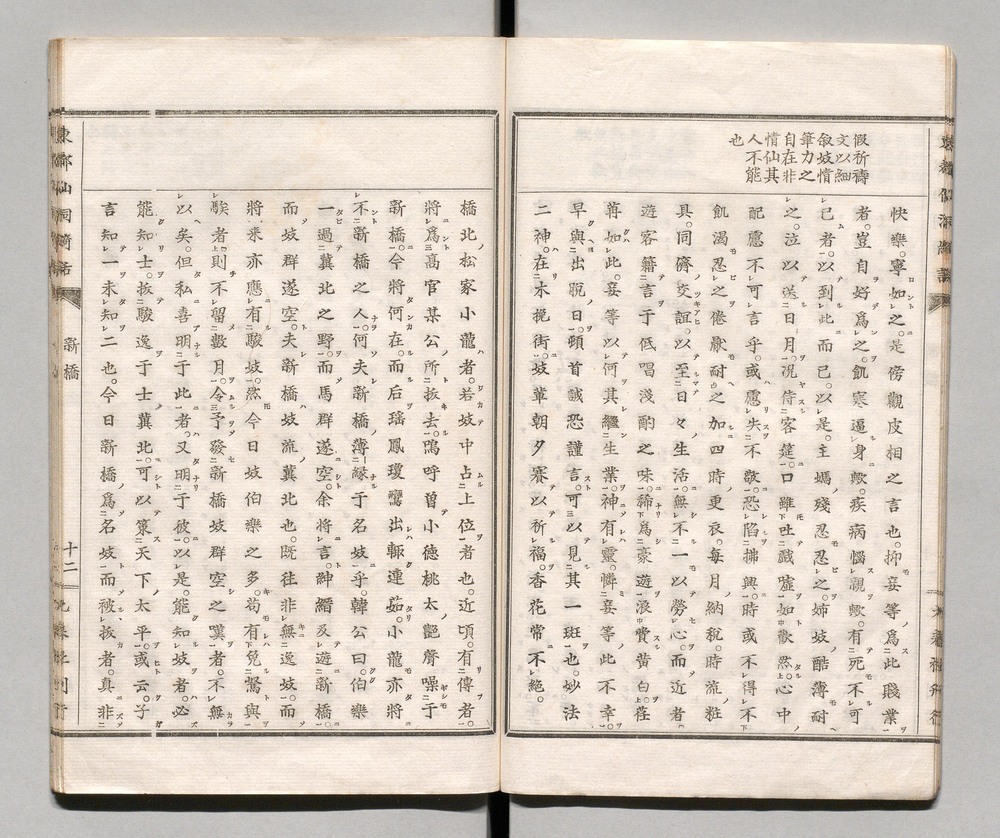 假祈禱
文以細
敘妓情
筆力之
自在非
情仙其
人不能
也
快樂。寧如之。是傍觀皮相之言也。抑妾等爲此賤業
者。豈自好爲之。飢寒逼身歟。疾病惱親歟。有死不可
已者。以到此而已。以是主媽殘忍忍之。姉妓酷薄耐
之。泣以送日月。況侍客筵。口雖吐戲嘘如歡然。心中
配慮不可言乎。或慮失不敬。恐陷拂興。時或不得不
飢渴忍之。倦厭耐之。加四時更衣。每月納稅。時流粧
具。同儕交誼。以至日々生活。無不一以勞心。而近者
遊客籍言于低唱淺酌之味。稀爲豪遊。浪費黄白。荏
苒如此。妾等以何其繼生業。神有靈。憐妾等此不幸。
早與出脫日。頓首誠恐謹言。可以見其一斑也。妙法
二神。在木挽街。妓輩朝夕賽以祈福。香花常不絕。
橋北松家小龍者。若妓中占上位者也。近頃有傳者。
將爲高官某公所拔去。嗚呼曾小德桃太艷聲噪于
新橋。今將何在。而后瑤鳳瓊鸞出輙連茹。小龍亦將
不新橋之人。何夫新橋薄緣于名妓乎。韓公曰。伯樂
一過冀北之野。而馬群遂空。余將言。紳縉及遊新橋。
而妓群遂空。夫新橋妓流冀北也。既往非無逸妓。而
將來亦應有駿妓。然今日妓伯樂之多。苟有兔驚與
騃者則不留數月。令予發新橋妓群空之嘆者。不無
以矣。但私喜明于此者。又明于彼。以是。能知妓者。必
能知士。拔駿逸于士冀北。可以策天下太平。或云。子
言知一未知二也。今日新橋爲名妓而被拔者。眞非
東都仙洞綺話
新橋
十二